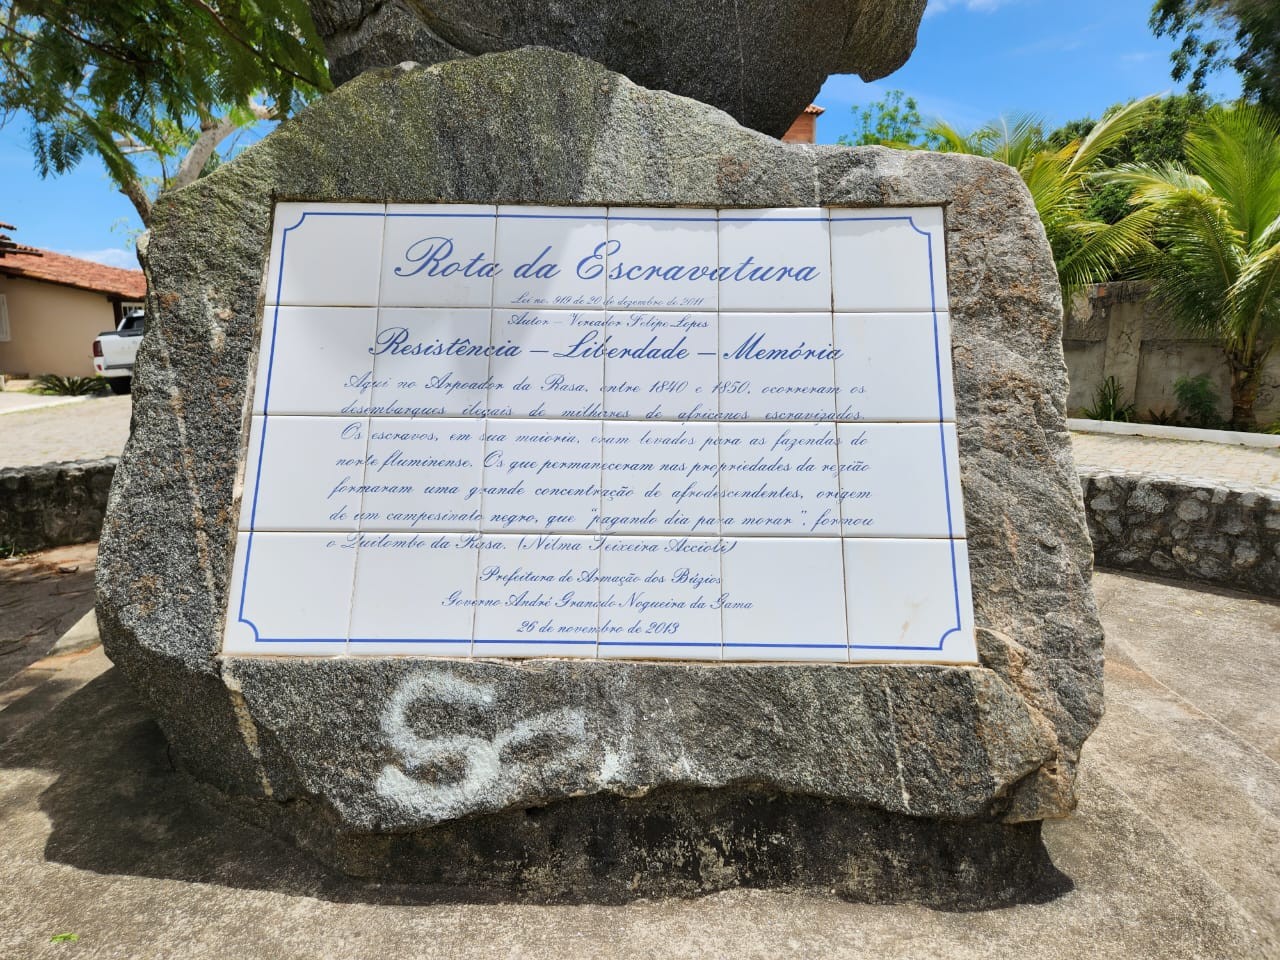 Rota da Escravatura
Lei no. 919 de 20 de dezembro de 2011
Autor – Vereador Felipe Lopes
Resistência – Liberdade – Memória
Aqui no Arpoador da Rasa, entre 1840 e 1850, ocorreram os
desembarques ilegais de milhares de africanos escravizados.
Os escravos, em sua maioria, eram levados para as fazendas do
norte fluminense. Os que permaneceram nas propriedades da região
formaram uma grande concentração de afrodescendentes, origem
de um campesinato negro, que "pagando dia para morar", formou
o Quilombo da Rasa. (Nilma Teixeira Accioli)
Prefeitura de Armação dos Búzios
Governo André Granado Nogueira da Gama
26 de novembro de 2013